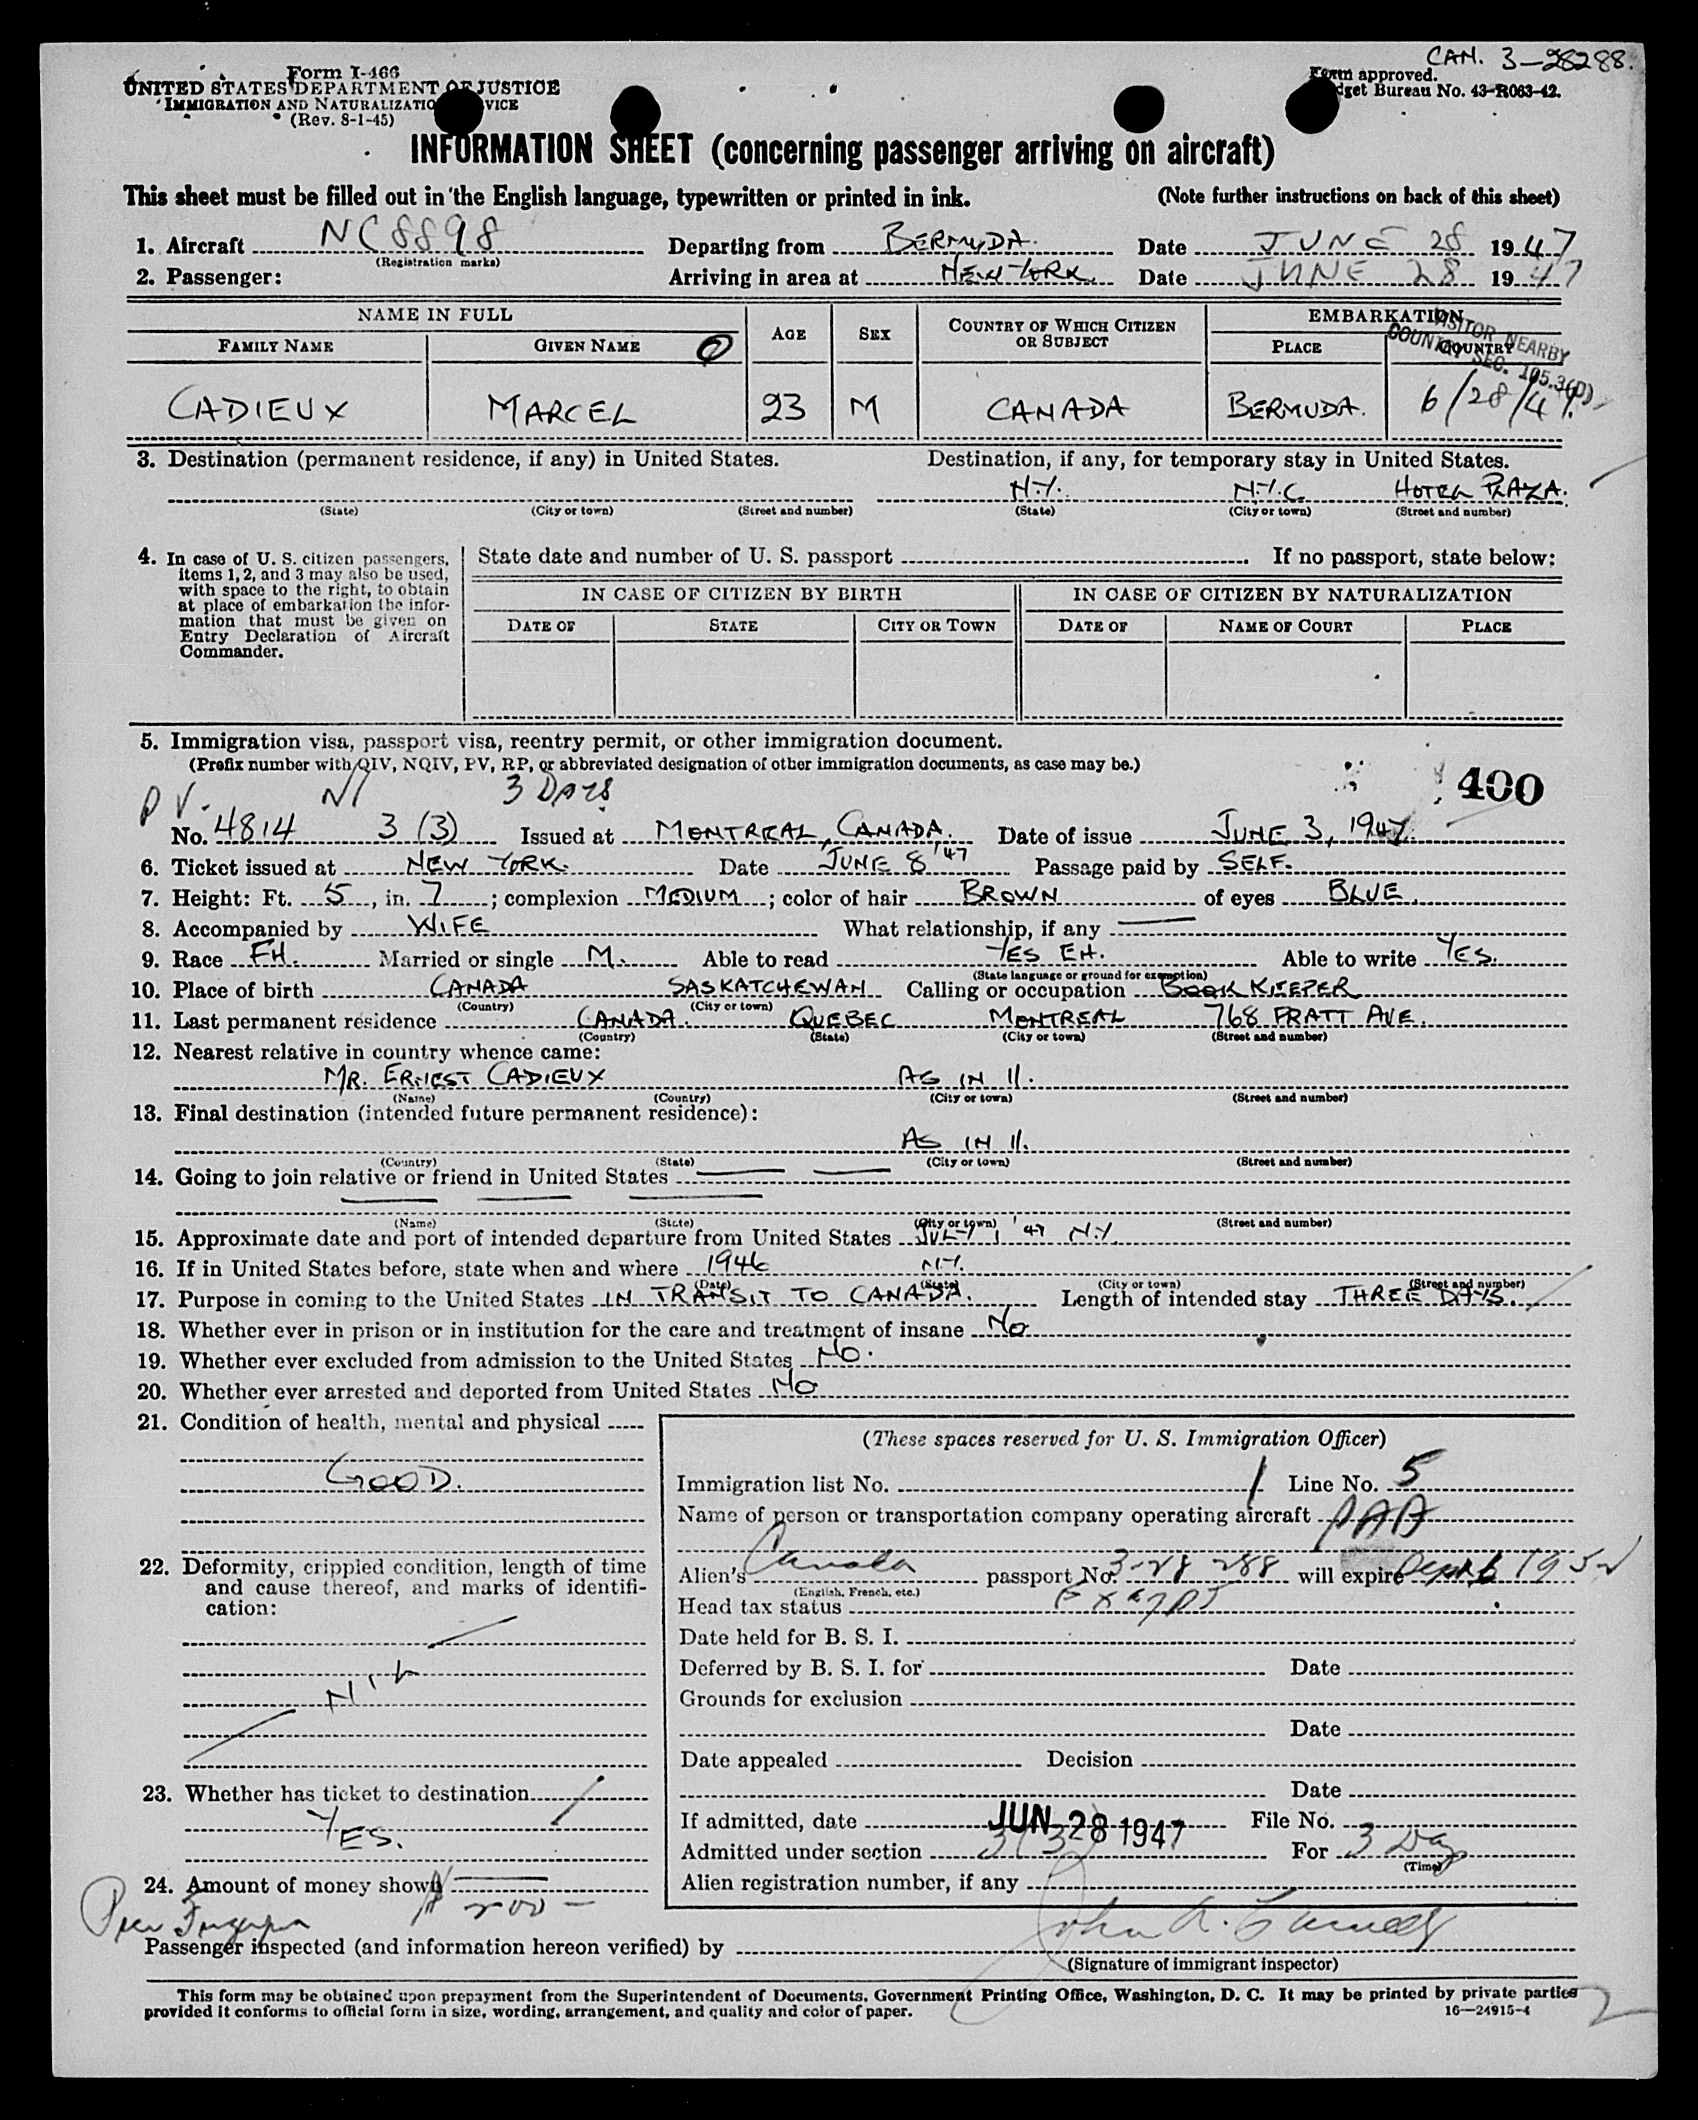 CAN. 3-28288.
Form I-466
UNITED STATES DEPARTMENT OF JUSTICE
IMMIGRATION AND NATURALIZATION SERVICE
(Rev. 8-1-45)
Form approved.
Budget Bureau No. 43-R063-42.
INFORMATION SHEET (concerning passenger arriving on aircraft)
This sheet must be filled out in the English language, typewritten or printed in ink. (Note further instructions on back of this sheet)
1. Aircraft NC 8898 Departing from BERMUDA. Date JUNE 28 1947
(Registration marks)
2. Passenger: Arriving in area at NEW YORK Date JUNE 28 1947
NAME IN FULL AGE SEX COUNTRY OF WHICH CITIZEN OR SUBJECT EMBARKATION
FAMILY NAME GIVEN NAME PLACE COUNTRY
VISITOR NEARBY
COUNTRY SEC. 105.3(D)
CADIEUX MARCEL 23 M CANADA BERMUDA. 6/28/47.
3. Destination (permanent residence, if any) in United States. Destination, if any, for temporary stay in United States.
N.Y. N.Y.C HOTEL PLAZA.
(State) (City or town) (Street and number) (State) (City or town) (Street and number)
4. In case of U. S. citizen passengers, items 1, 2, and 3 may also be used, with space to the right, to obtain at place of embarkation the information that must be given on Entry Declaration of Aircraft Commander.
State date and number of U. S. passport If no passport, state below:
IN CASE OF CITIZEN BY BIRTH IN CASE OF CITIZEN BY NATURALIZATION
DATE OF STATE CITY OR TOWN DATE OF NAME OF COURT PLACE
5. Immigration visa, passport visa, reentry permit, or other immigration document.
(Prefix number with QIV, NQIV, PV, RP, or abbreviated designation of other immigration documents, as case may be.)
400
PV. 3 DAYS
No. 4814 3 (3) Issued at MONTREAL, CANADA. Date of issue JUNE 3, 1947.
6. Ticket issued at NEW YORK. Date JUNE 8 '47 Passage paid by SELF.
7. Height: Ft. 5, in. 7; complexion MEDIUM; color of hair BROWN of eyes BLUE.
8. Accompanied by WIFE What relationship, if any
9. Race FH. Married or single M. Able to read YES EH. Able to write YES.
(State language or ground for exemption)
10. Place of birth CANADA SASKATCHEWAN Calling or occupation BOOK KEEPER
(Country) (City or town)
11. Last permanent residence CANADA. QUEBEC MONTREAL 768 PRATT AVE.
(Country) (State) (City or town) (Street and number)
12. Nearest relative in country whence came:
MR. ERNEST CADIEUX AS IN 11.
(Name) (Country) (City or town) (Street and number)
13. Final destination (intended future permanent residence):
AS IN 11.
(Country) (State) (City or town) (Street and number)
14. Going to join relative or friend in United States
(Name) (State) (City or town) (Street and number)
15. Approximate date and port of intended departure from United States JULY 1 '47 N.Y
16. If in United States before, state when and where 1946 N.Y.
(Date) (State) (City or town) (Street and number)
17. Purpose in coming to the United States IN TRANSIT TO CANADA. Length of intended stay THREE DAYS.
18. Whether ever in prison or in institution for the care and treatment of insane No
19. Whether ever excluded from admission to the United States No.
20. Whether ever arrested and deported from United States No
21. Condition of health, mental and physical
GOOD.
22. Deformity, crippled condition, length of time and cause thereof, and marks of identification:
NIL
23. Whether has ticket to destination
YES.
24. Amount of money shown $ 200 -
(These spaces reserved for U. S. Immigration Officer)
Immigration list No. 1 Line No. 5
Name of person or transportation company operating aircraft PAA
Alien's Canada passport No. 3-28 288 will expire 1952
(English, French, etc.)
Head tax status Exempt
Date held for B. S. I.
Deferred by B. S. I. for Date
Grounds for exclusion
Date
Date appealed Decision
Date
If admitted, date JUN 28 1947 File No.
Admitted under section 3(3) For 3 Days
(Time)
Alien registration number, if any
Passenger inspected (and information hereon verified) by John A.
(Signature of immigrant inspector)
This form may be obtained upon prepayment from the Superintendent of Documents, Government Printing Office, Washington, D. C. It may be printed by private parties
provided it conforms to official form in size, wording, arrangement, and quality and color of paper. 16—24915-4
2